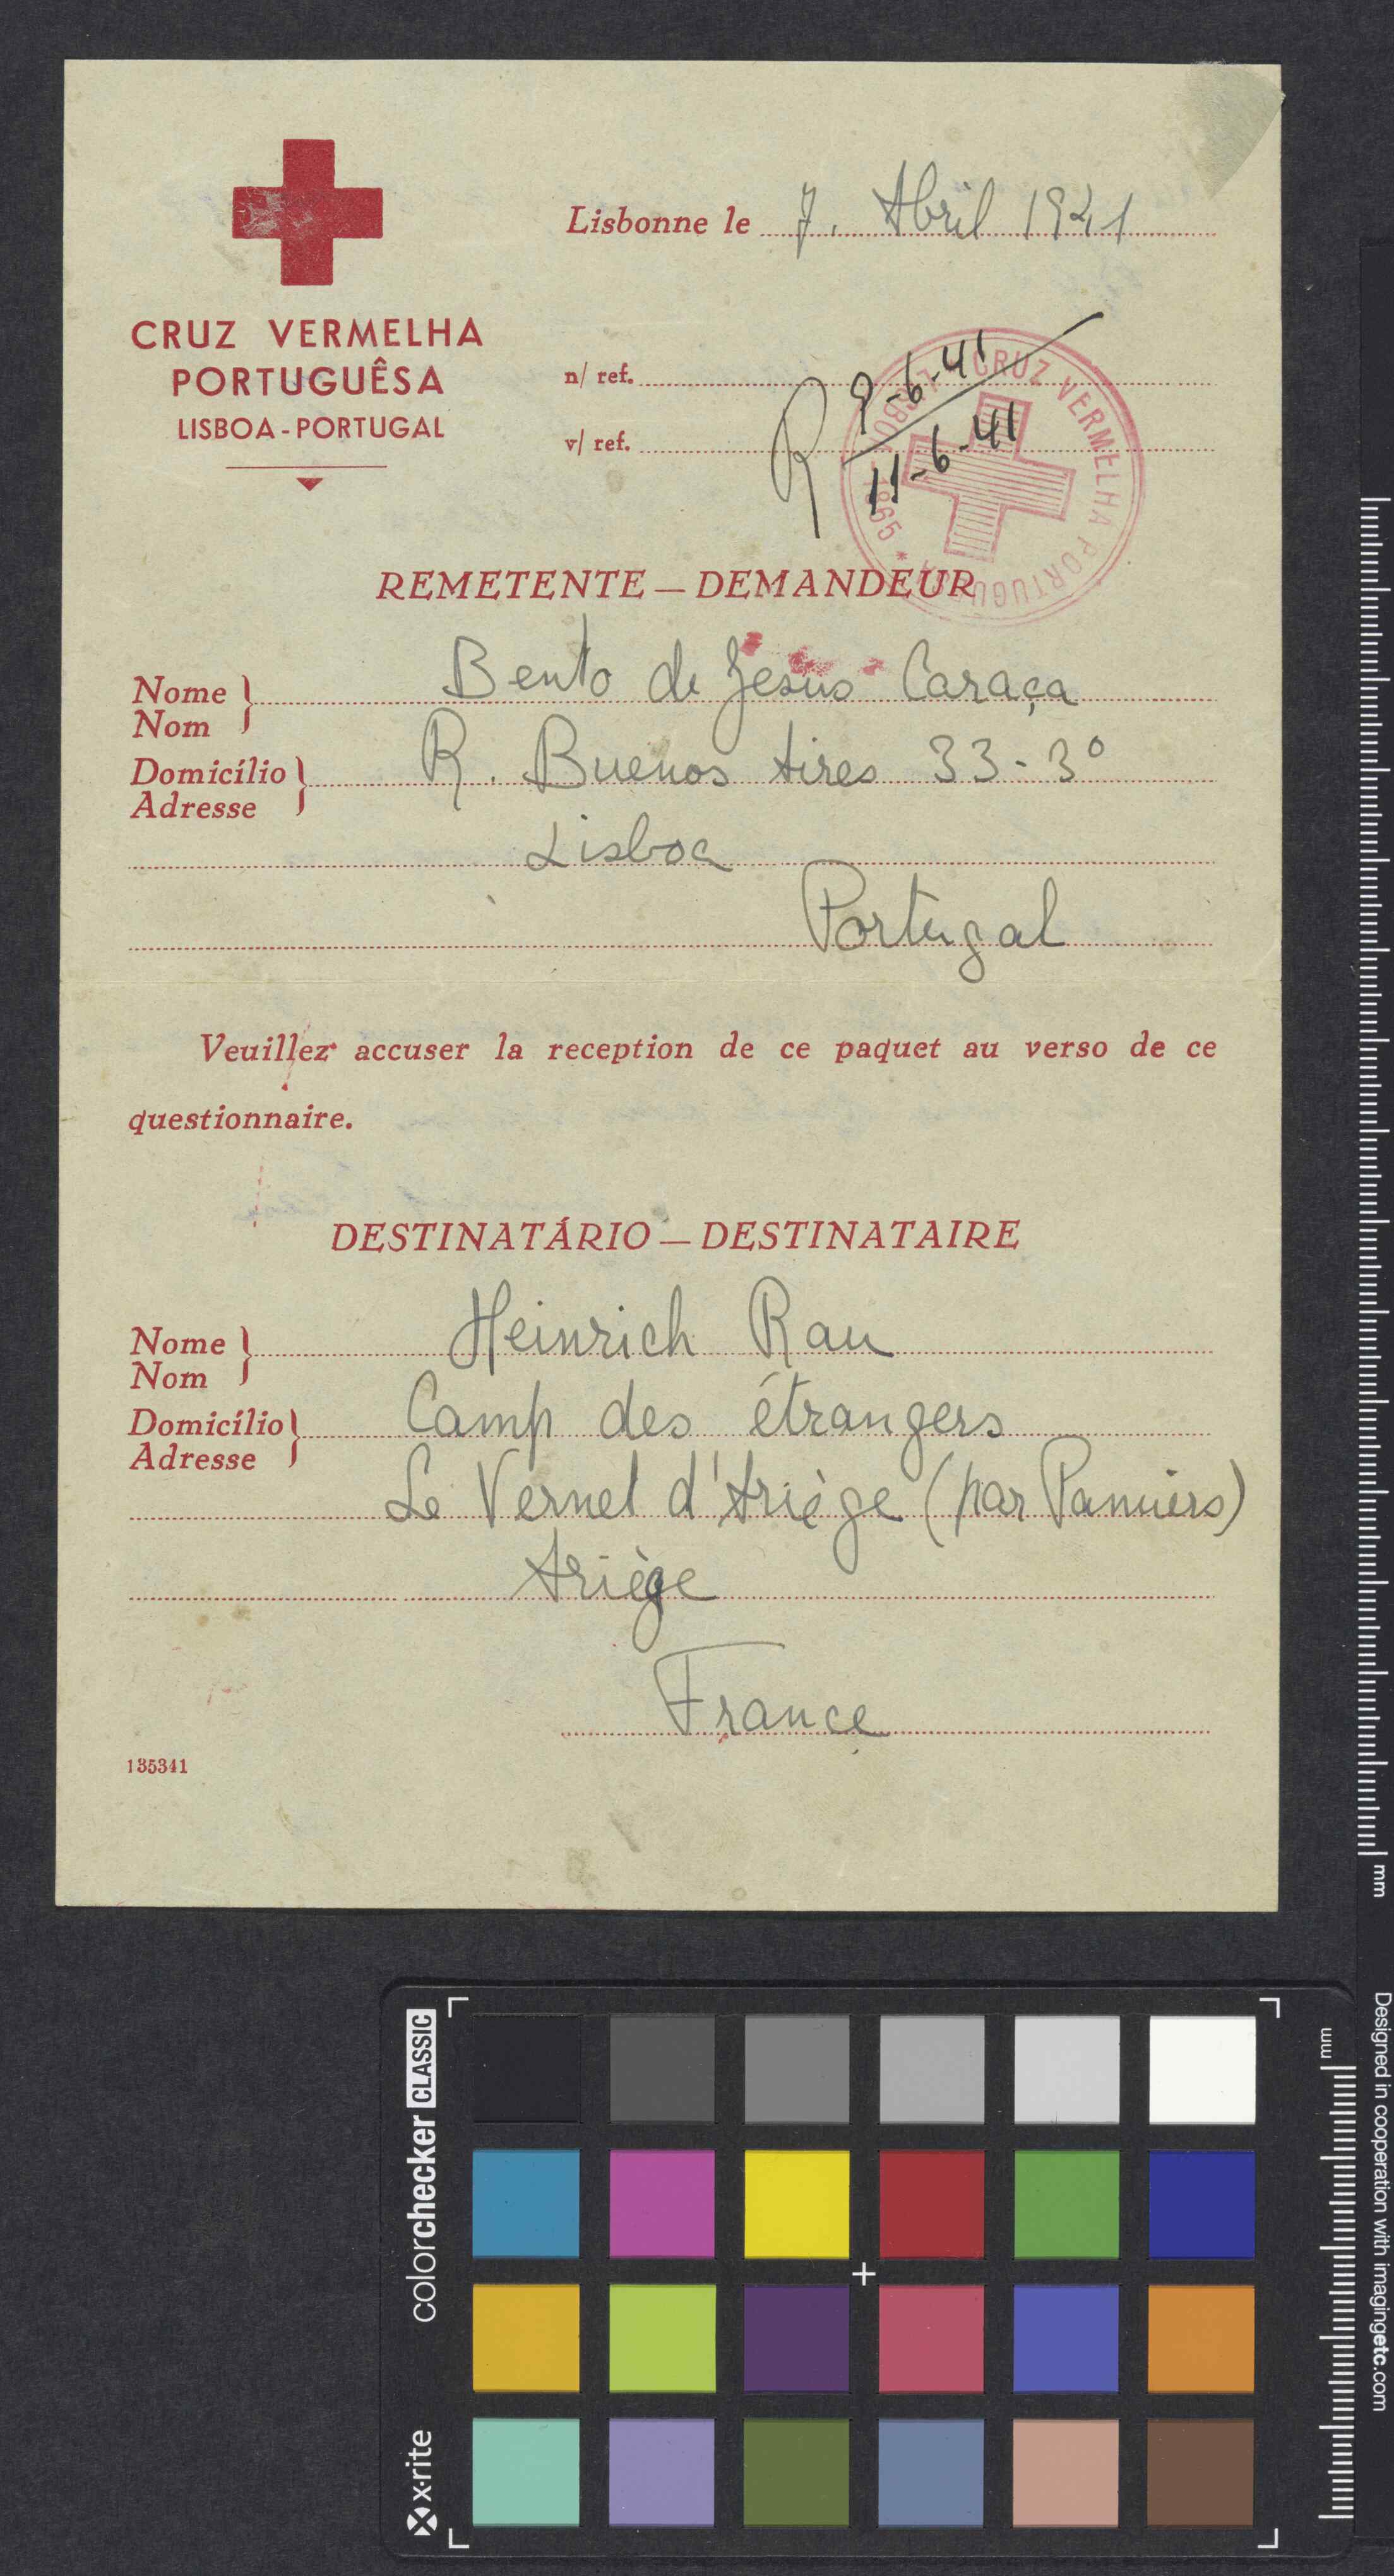 CRUZ VERMELHA
PORTUGUÊSA
LISBOA-PORTUGAL
Lisbonne le 7. Abril 1941
n/ ref.
v/ ref.
R 9-6-41
11-6-41
CRUZ VERMELHA PORTUGUESA * 1865 - LISBOA
REMETENTE — DEMANDEUR
Nome Bento de Jesus Caraça
Nom
Domicílio R. Buenos Aires 33-3º
Adresse
Lisboa
Portugal
Veuillez accuser la reception de ce paquet au verso de ce
questionnaire.
DESTINATÁRIO — DESTINATAIRE
Nome Heinrich Rau
Nom
Domicílio Camp des étrangers
Adresse
Le Vernet d'Ariège (par Pamiers)
Ariège
France
135341
mm
Designed in cooperation with imagingetc.com
mm
colorchecker CLASSIC
x-rite